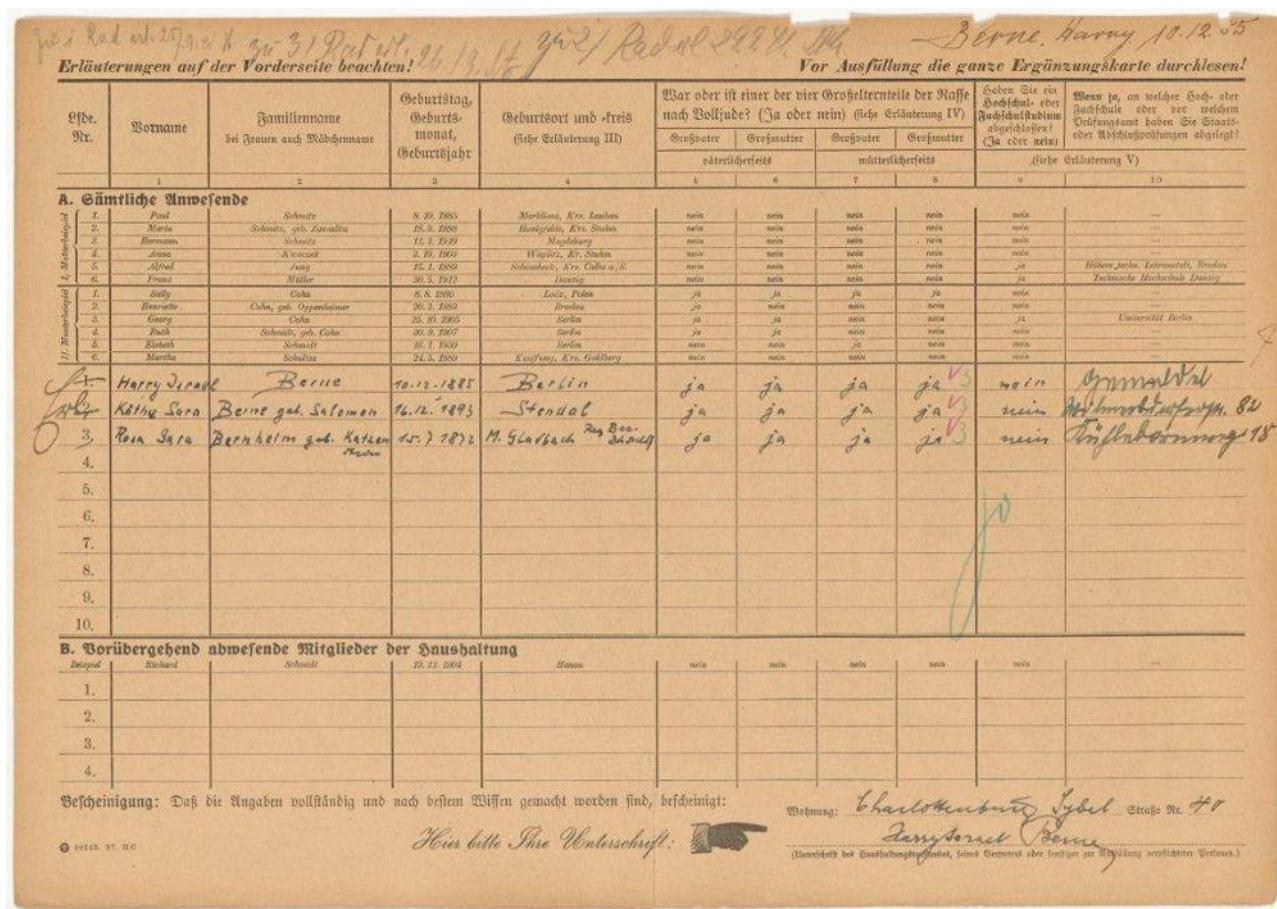 Berne, Harry 10.12.85
Erläuterungen auf der Vorderseite beachten!
Vor Ausfüllung die ganze Ergänzungskarte durchlesen!
Lfde. Nr.
Vorname
Familienname
bei Frauen auch Mädchenname
Geburtstag,
Geburts-
monat,
Geburtsjahr
Geburtsort und -kreis
(siehe Erläuterung III)
War oder ist einer der vier Großelternteile der Rasse
nach Volljude? (Ja oder nein) (siehe Erläuterung IV)
Großvater Großmutter Großvater Großmutter
väterlicherseits mütterlicherseits
Haben Sie ein
Hochschul- oder
Fachschulstudium
abgeschlossen?
(Ja oder nein)
Wenn ja, an welcher Hoch- oder
Fachschule oder vor welchem
Prüfungsamt haben Sie Staats-
oder Abschlußprüfungen abgelegt?
(siehe Erläuterung V)
1 2 3 4 5 6 7 8 9 10
A. Sämtliche Anwesende
I. Musterbeispiel
1. Paul Schmitz 8. 10. 1885 Marklissa, Krs. Lauban nein nein nein nein nein —
2. Maria Schmitz, geb. nein nein nein nein nein —
3. Hermann Schmitz Magdeburg nein nein nein nein nein —
4. Anna nein nein nein nein nein —
5. Alfred Jung 15. 1. 1889 nein nein nein nein ja
6. Franz Müller 30. 5. 1912 Danzig nein nein nein nein ja Technische Hochschule Danzig
II. Musterbeispiel
1. Sally Cohn 8. 8. 1880 Lodz, Polen ja ja ja ja nein —
2. Henriette Cohn, geb. Oppenheimer Breslau ja nein nein nein nein —
3. Georg Cohn 25. 10. 1905 Berlin ja ja ja nein ja Universität Berlin
4. Ruth Schmidt, geb. Cohn 30. 9. 1907 Berlin ja ja nein nein —
5. Elsbeth Schmidt Berlin nein nein ja nein nein —
6. Martha Schultze 24. 5. 1889 Kauffung, Krs. Goldberg nein nein nein nein nein —
1. Harry Israel Berne 10.12.1885 Berlin ja ja ja ja nein
2. Käthe Sara Berne geb. Salomon 16.12.1893 Stendal ja ja ja ja nein 82
3. Rosa Sara Bernheim geb. 15.7 1872 M. Gladbach ja ja ja ja nein 18
4.
5.
6.
7.
8.
9.
10.
B. Vorübergehend abwesende Mitglieder der Haushaltung
Beispiel Richard Schmidt 19. 11. 1904 Hanau nein nein nein nein nein —
1.
2.
3.
4.
Bescheinigung: Daß die Angaben vollständig und nach bestem Wissen gemacht worden sind, bescheinigt:
Wohnung: Charlottenburg Sybel Straße Nr. 40
Hier bitte Ihre Unterschrift:
Harry Israel Berne
(Unterschrift des Haushaltungsvorstandes, seines Vertreters oder sonstiger zur Ausfüllung verpflichteter Personen.)